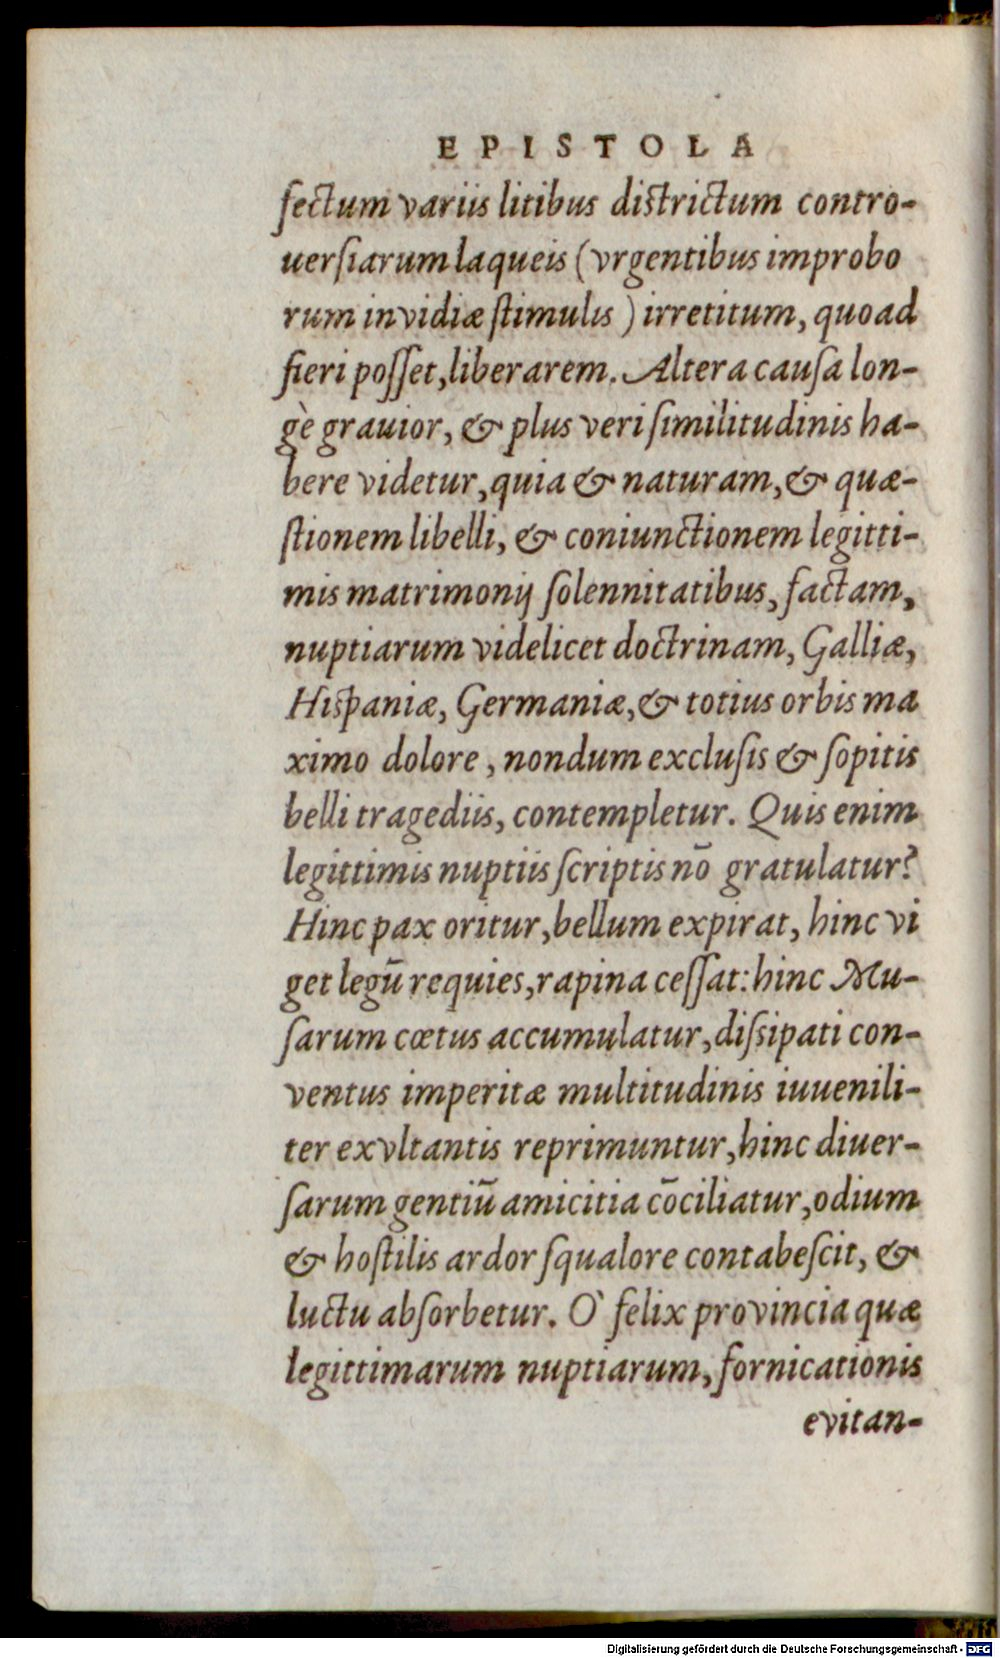 EPISTOLA
fectum variis litibus districtum contro-
uersiarum laqueis (vrgentibus improbo
rum invidiæ stimulis) irretitum, quoad
fieri posset, liberarem. Altera causa lon-
gè grauior, & plus verisimilitudinis ha-
bere videtur, quia & naturam, & quæ-
stionem libelli, & coniunctionem legitti-
mis matrimonij solennitatibus, factam,
nuptiarum videlicet doctrinam, Galliæ,
Hispaniæ, Germaniæ, & totius orbis ma
ximo dolore, nondum exclusis & sopitis
belli tragediis, contempletur. Quis enim
legittimis nuptiis scriptis nō gratulatur?
Hinc pax oritur, bellum expirat, hinc vi
get legū requies, rapina cessat: hinc Mu-
sarum cœtus accumulatur, dissipati con-
ventus imperitæ multitudinis iuuenili-
ter exvltantis reprimuntur, hinc diuer-
sarum gentiū amicitia cōciliatur, odium
& hostilis ardor squalore contabescit, &
luctu absorbetur. Ò felix provincia quæ
legittimarum nuptiarum, fornicationis
evitan-
Digitalisierung gefördert durch die Deutsche Forschungsgemeinschaft - DFG